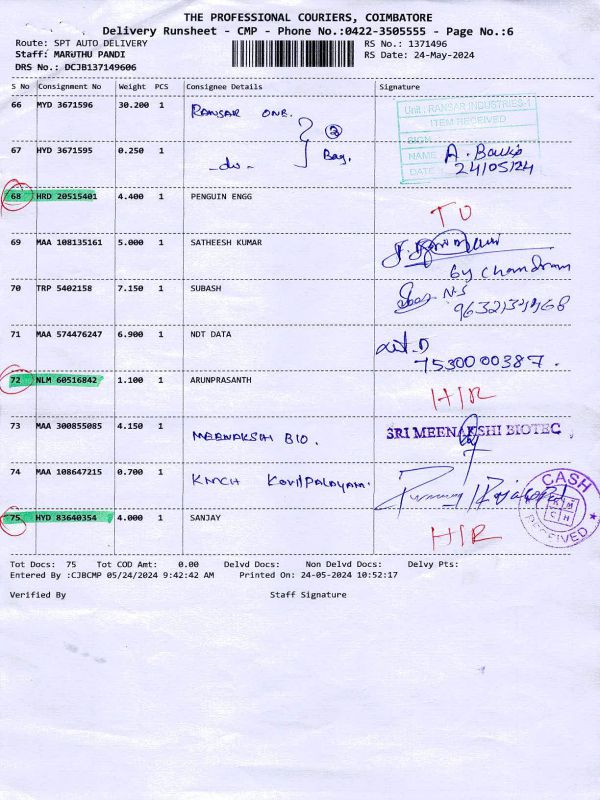 THE PROFESSIONAL COURIERS, COIMBATORE
Delivery Runsheet - CMP - Phone No.:0422-3505555 - Page No.:6
Route: SPT AUTO DELIVERY RS No.: 1371496
Staff: MARUTHU PANDI RS Date: 24-May-2024
DRS No.: DCJB137149606
S No Consignment No Weight PCS Consignee Details Signature
66 MYD 3671596 30.200 1 RANSAR ONE.
Unit : RANSAR INDUSTRIES-1
ITEM RECEIVED
SIGN
NAME
DATE 24/05/24
67 HYD 3671595 0.250 1 -do- } ② Bag.
68 HRD 20515401 4.400 1 PENGUIN ENGG
TO
69 MAA 108135161 5.000 1 SATHEESH KUMAR
by chandran
70 TRP 5402158 7.150 1 SUBASH
N.S
71 MAA 574476247 6.900 1 NDT DATA
7530000387.
72 NLM 60516842 1.100 1 ARUNPRASANTH
H/R
73 MAA 300855085 4.150 1 MEENAKSHI BIO.
SRI MEENAKSHI BIOTEC
74 MAA 108647215 0.700 1 KMCH Kovilpalayam.
CASH
KMCH
RECEIVED
75 HYD 83640354 4.000 1 SANJAY
H/R
Tot Docs: 75 Tot COD Amt: 0.00 Delvd Docs: Non Delvd Docs: Delvy Pts:
Entered By :CJBCMP 05/24/2024 9:42:42 AM Printed On: 24-05-2024 10:52:17
Verified By Staff Signature